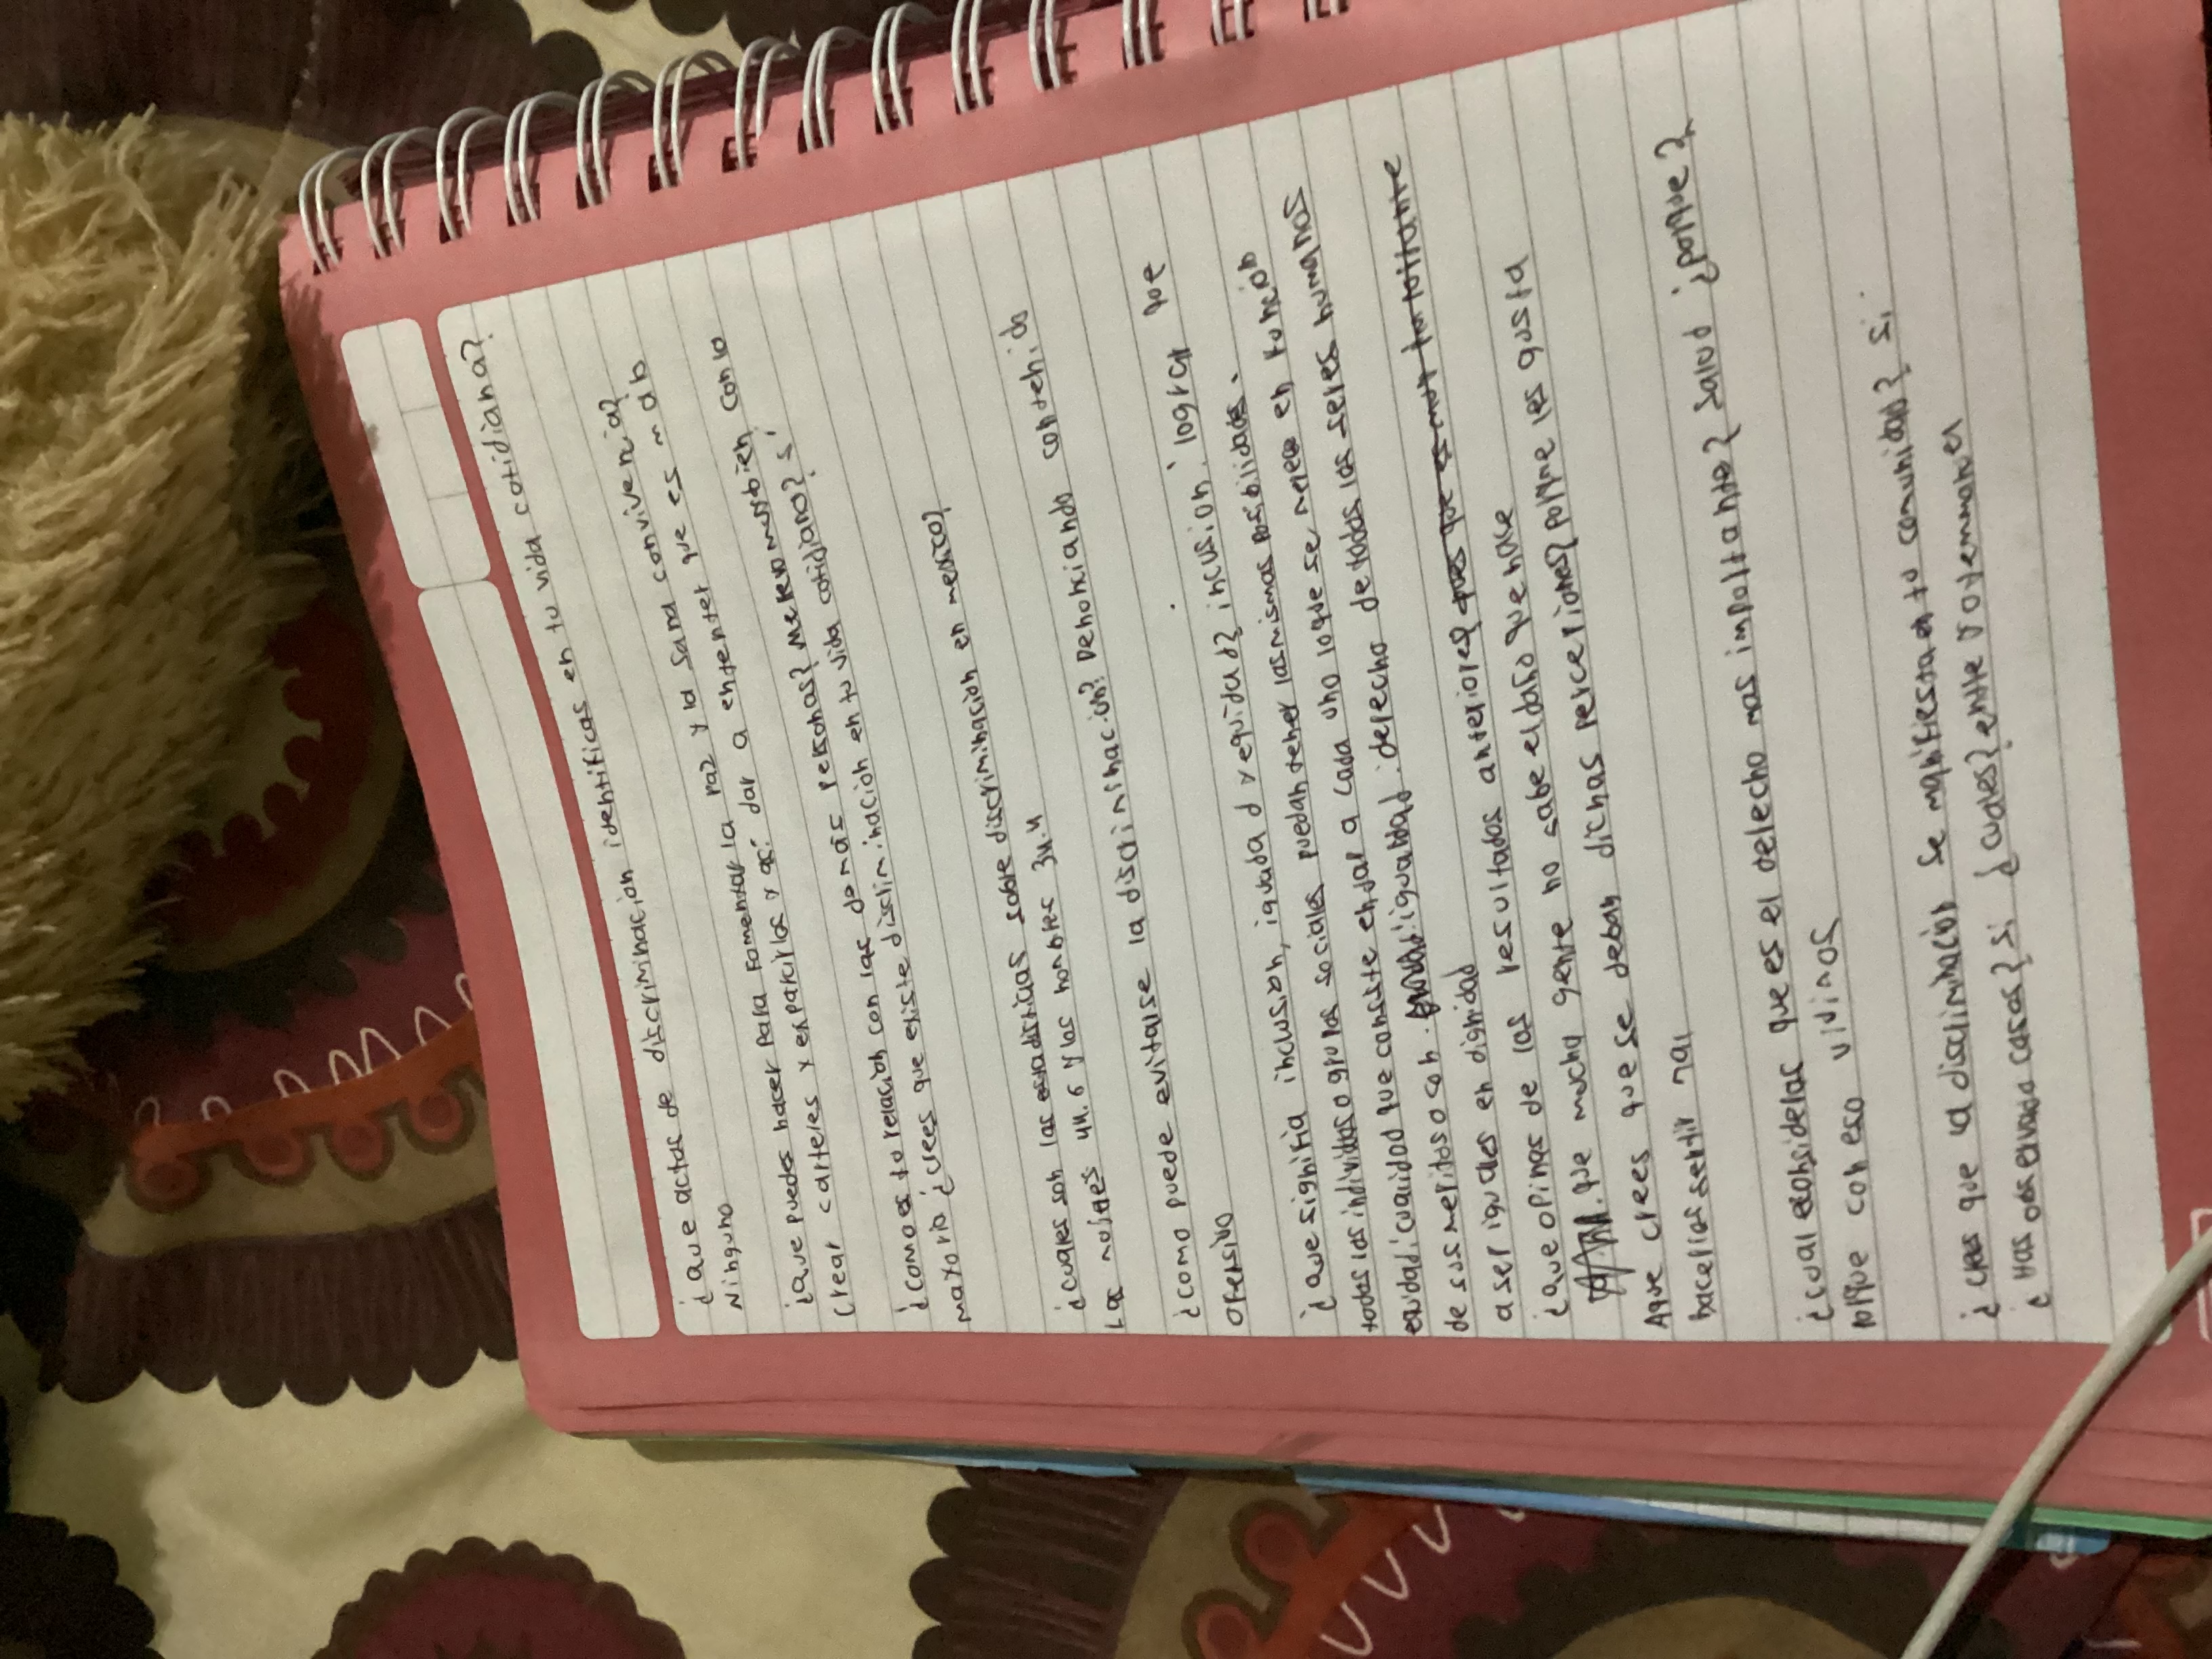 ¿que actos de discriminación identificas en tu vida cotidiana?
Ninguno
¿que puedes hacer para fomentar la paz y la sana convivencia?
crear carteles y exparcirlos y así dar a ententer que es mab
¿como es tu relación con las demás personas? me llevo muy bien con la
mayoria ¿crees que existe discriminación en tu vida cotidiano? si
¿cuales son las estadisticas sobre discriminación en mexico?
Las mujeres 44.6 y los hombres 34.4
¿como puede evitarse la discriminación? Denonciando contenido
ofensivo
¿que signifia inclusion, iguada d y equidad? inclusion: lograr que
todos los individos o grupos sociales puedan tener las mismas posbilidades.
equidad: cualidad que consiste en dar a cada uno lo que se merece en funcion
de sus meritos o con. igualdad: derecho de todos los seres humanos
a ser iguales en dignidad
¿que opinas de los resultados anteriores?
que mucha gente no sabe el daño que hace
Aque crees que se deban dichas percepciones? porque les gusta
hacerlos sentir mal
¿cual consideras que es el derecho mas importante? salud ¿porque?
porque con eso vivimos
¿crees que la discriminación se manifiesta en tu comunidad? si.
¿Has observado casos? si ¿cuales? entre